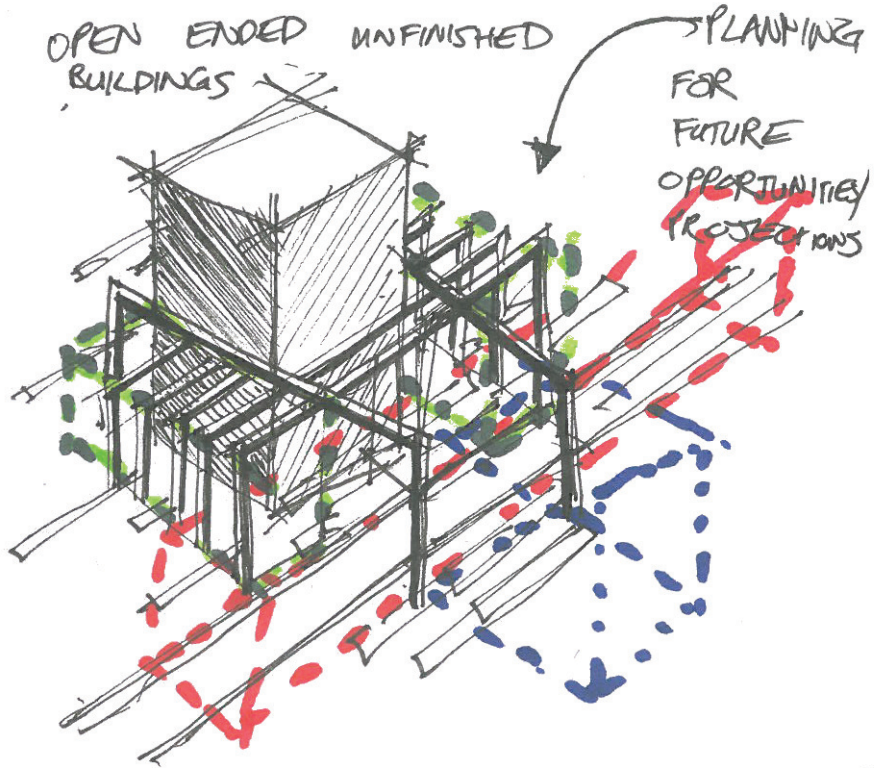 OPEN ENDED UNFINISHED
BUILDINGS
PLANNING
FOR
FUTURE
OPPORTUNITIES/
PROJECTIONS